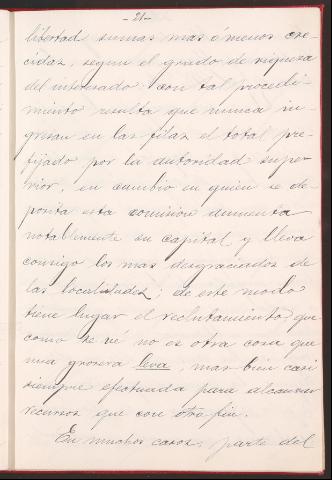 -21-
libertad sumas mas ó menos cre-
cidas, segun el grado de riqueza
del interesado con tal procedi-
miento resulta que nunca in-
gresan en las filas el total pre-
fijado por la autoridad supe-
rior, en cambio en quien se de-
posita esta comision aumenta
notablemente su capital y lleva
consigo los mas desgraciados de
las localidades; de este modo
tiene lugar el reclutamiento que
como se vé no es otra cosa que
una grosera leva, mas bien casi
siempre efectuada para alcanzar
recursos que con otro fin.
En muchos casos, parte del